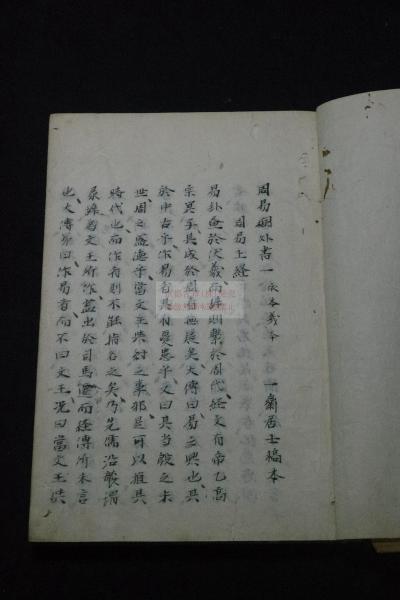 周易 外書一 依本義本 一齋居士稿本
周易上經
易卦 於伏羲而 則繫於周代經文有帝乙高
宗 其成於周 無疑矣大傳曰易之興也其
於中古乎作易者其有憂患乎又曰其當殷之末
世周之盛德乎當文王與紂之事邪是可以推其
時代也而作者則不能指名之矣乃先儒沿 謂
彖 爲文王所作盖出於司馬遷而經傳所未言
也大傳第曰作易者而不曰文王況曰當文王與